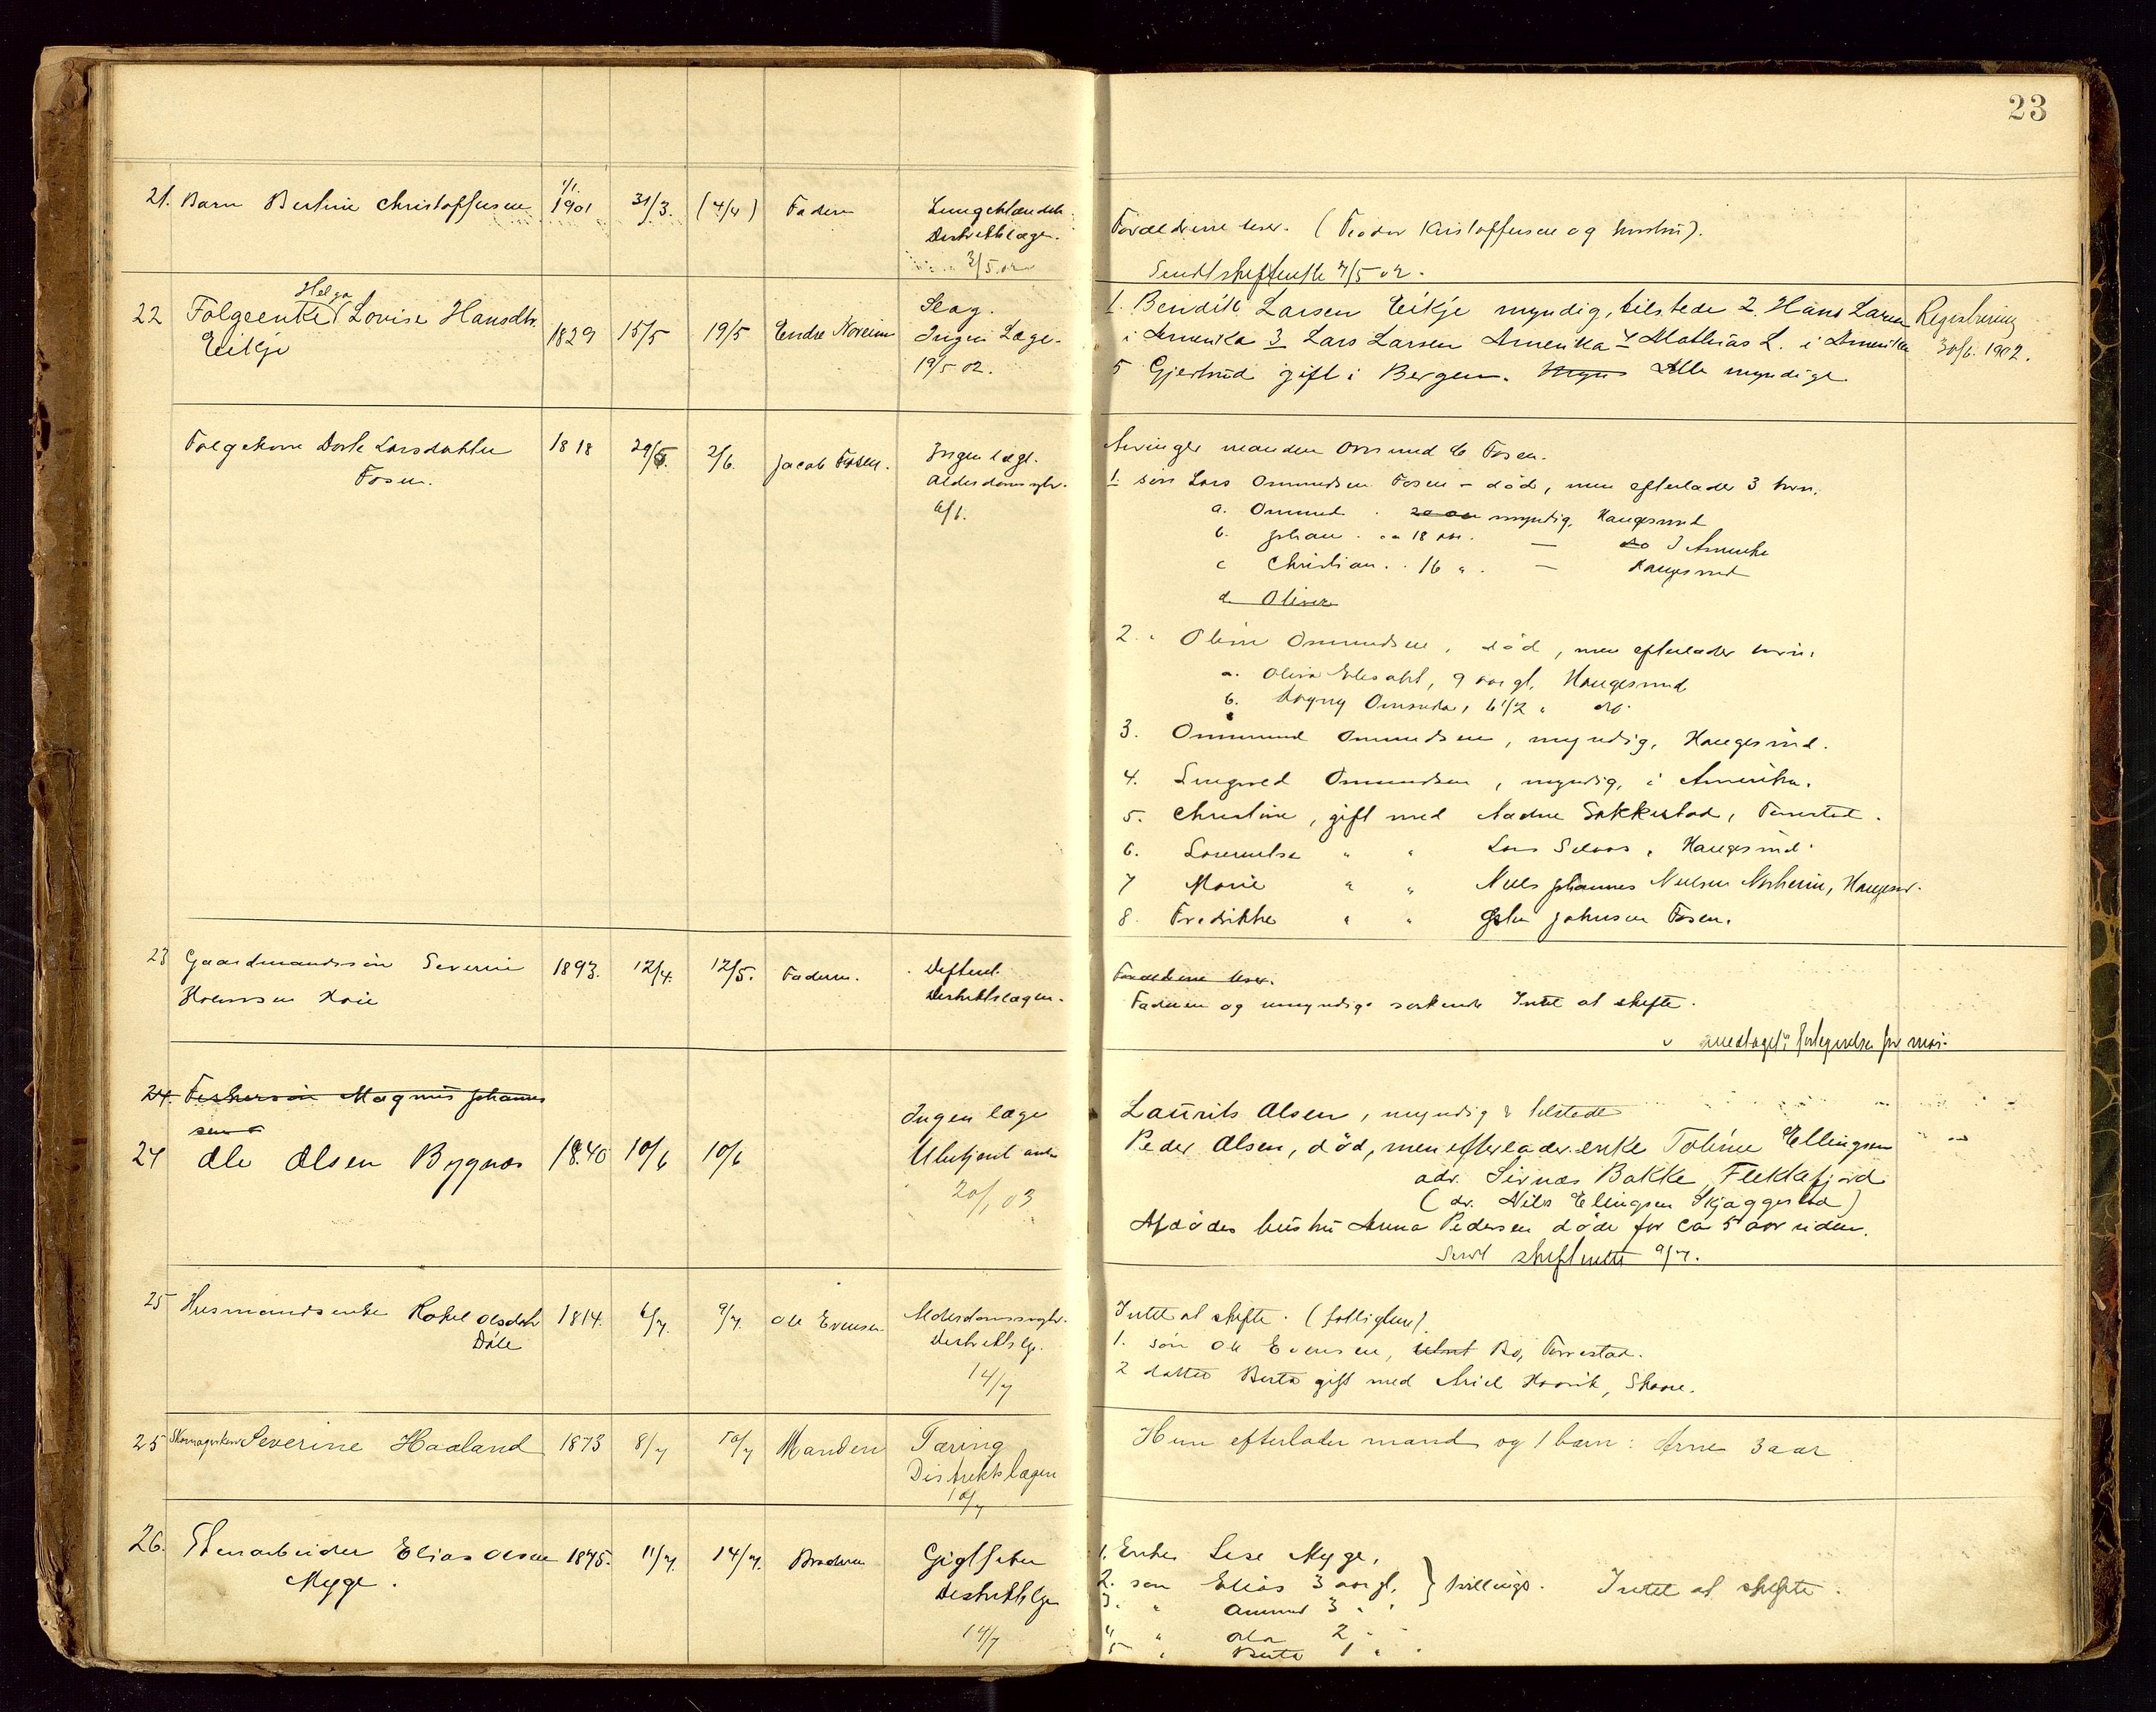 23
21. Barn Bertine Christoffersen 1/1. 1901 31/3. (4/4) Faderen Lungebetændelse
Distriktslæge.
3/5.02
Forældrene lever. (Teodor Kristoffersen og hustru).
Sendt skifteretten 7/5 02.
22 Folgeenke Helga Lovise Hansdtr. 1829 15/5 19/5 Endre Noreim Slag.
Eikje
Ingen Læge.
19/5 02.
1. Bendik Larsen Eikje myndig, tilstede 2. Hans Larsen
i Amerika 3 Lars Larsen Amerika 4 Mathias L. i Amerika
5 Gjertrud gift i Bergen. Alle myndige
Registrering
30/6. 1902.
Folgekone Dorte Larsdatter 1818 29/5. 2/6. Jacob Fosen. Ingen læge.
Fosen.
Alderdomssygd.
6/6.
Arvinger manden Ommund Fosen.
1. søn Lars Ommundsen Fosen - død, men efterlader 3 børn.
a. Ommund. 20 aar myndig, Haugesund
b. Johan. ca 18 aar. — do I Amerika
c Christian. . 16 " . — Haugesund
d Oliver
2. " Oline Ommundsen, død, men efterlader børn:
a. Oliva Elisabet, 9 aar gl. Haugesund
b. Dagny Omunda, 6 1/2 " do.
3. Ommund Ommundsen, myndig, Haugesund.
4. Ommundsen, myndig, i Amerika.
5. Christine, gift med Aadne Sakkestad, Førrestad.
6. " " Lars , Haugesund.
7 Marie " " Niels Johannes Nielsen Norheim, Haugesd.
8. Fredrikke " " John Johnsen Fosen.
23 Gaardmandssøn Severin 1893. 12/4. 12/5. Faderen. Difterit.
Distriktslægen.
Forældrene lever.
Faderen og umyndige søskende Intet at skifte.
24. Fiskersøn Magnus Johannes
sen
24 Ole Olsen Bygnes 1840 10/6 10/6 Ingen læge
20/1 03
Laurits Olsen, myndig & tilstede
Peder Olsen, død, men efterlader enke Toline Ellingsen
adr. Sirnæs Bakke, Flekkefjord
(dr. Nils Ellingsen Skjaggestad)
Afdødes hustru Anna Pedersen døde for ca 5 aar siden.
Sendt skifteretten 9/7.
25 Husmandsenke Rakel Olsdatr 1814. 6/7. 9/7. Ole Evensen Alderdomssygd.
Døle
Distriktslg.
14/7
Intet at skifte. (fattiglem)
1. søn Ole Evensen, Bø, Førrestad.
2 datter Berta gift med Ariel Haavik, Skaare.
25 Skomagerkone Severine Haaland 1873 8/7 10/7 Manden Tæring
Distriktslægen
10/7
Hun efterlader mand og 1 barn: Arne 3 aar
26. Stenarbeider Elias Olsen 1875. 11/7. 14/7. Broderen Gigtfeber
Myge.
Distriktslg
14/7
1. Enke Lise Myge.
2. søn Elias 3 aar gl. } tvillinger. Intet at skifte.
3. " Ommund 3 " "
4 " Ola 2 " "
5 " Berta 1 " "